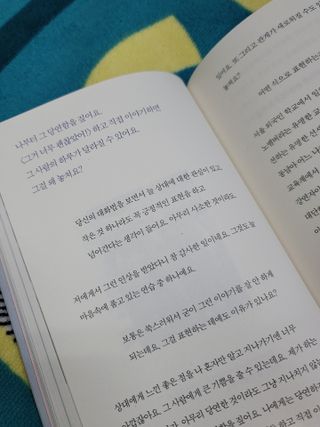 나부터 그 당연함을 끊어요.
〈그거 너무 괜찮았어!〉 하고 직접 이야기하면
그 사람의 하루가 달라질 수 있어요.
그걸 왜 놓쳐요?
당신의 대화법을 보면서 늘 상대에 대한 관심이 있고,
작은 것 하나라도 꼭 긍정적인 표현을 하고
넘어간다는 생각이 들어요. 아무리 사소한 것이라도
저에게서 그런 인상을 받았다니 참 감사한 일이네요. 그것도 늘
마음속에 품고 있는 연습 중 하나예요.
보통은 쑥스러워서 굳이 그런 이야기를 잘 안 하게
되는데요. 그걸 표현하는 데에도 이유가 있나요?
상대에게 느낀 좋은 점을 나 혼자만 알고 지나가기엔 너무
아깝잖아요. 그 사람에게 큰 기쁨을 줄 수 있는데요. 제가 하는
아무리 당연한 것이라도 그냥 지나치지 않는
당연함을 끊어요. 나에게는 당연하지
있어요. 또 그리고 관계가 새로워질 수도 있
놓쳐요?
어떤 식으로 표현하는
서울 외국인 학교에서 일